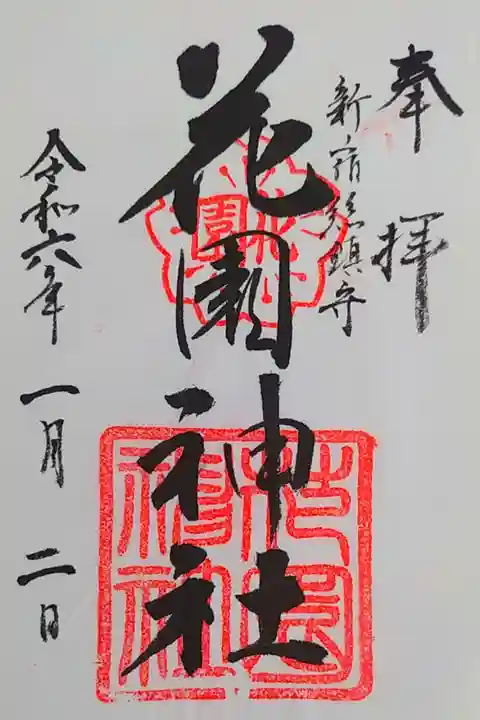 奉拝
新宿総鎮守
花園神社
令和六年一月二日
花園神社